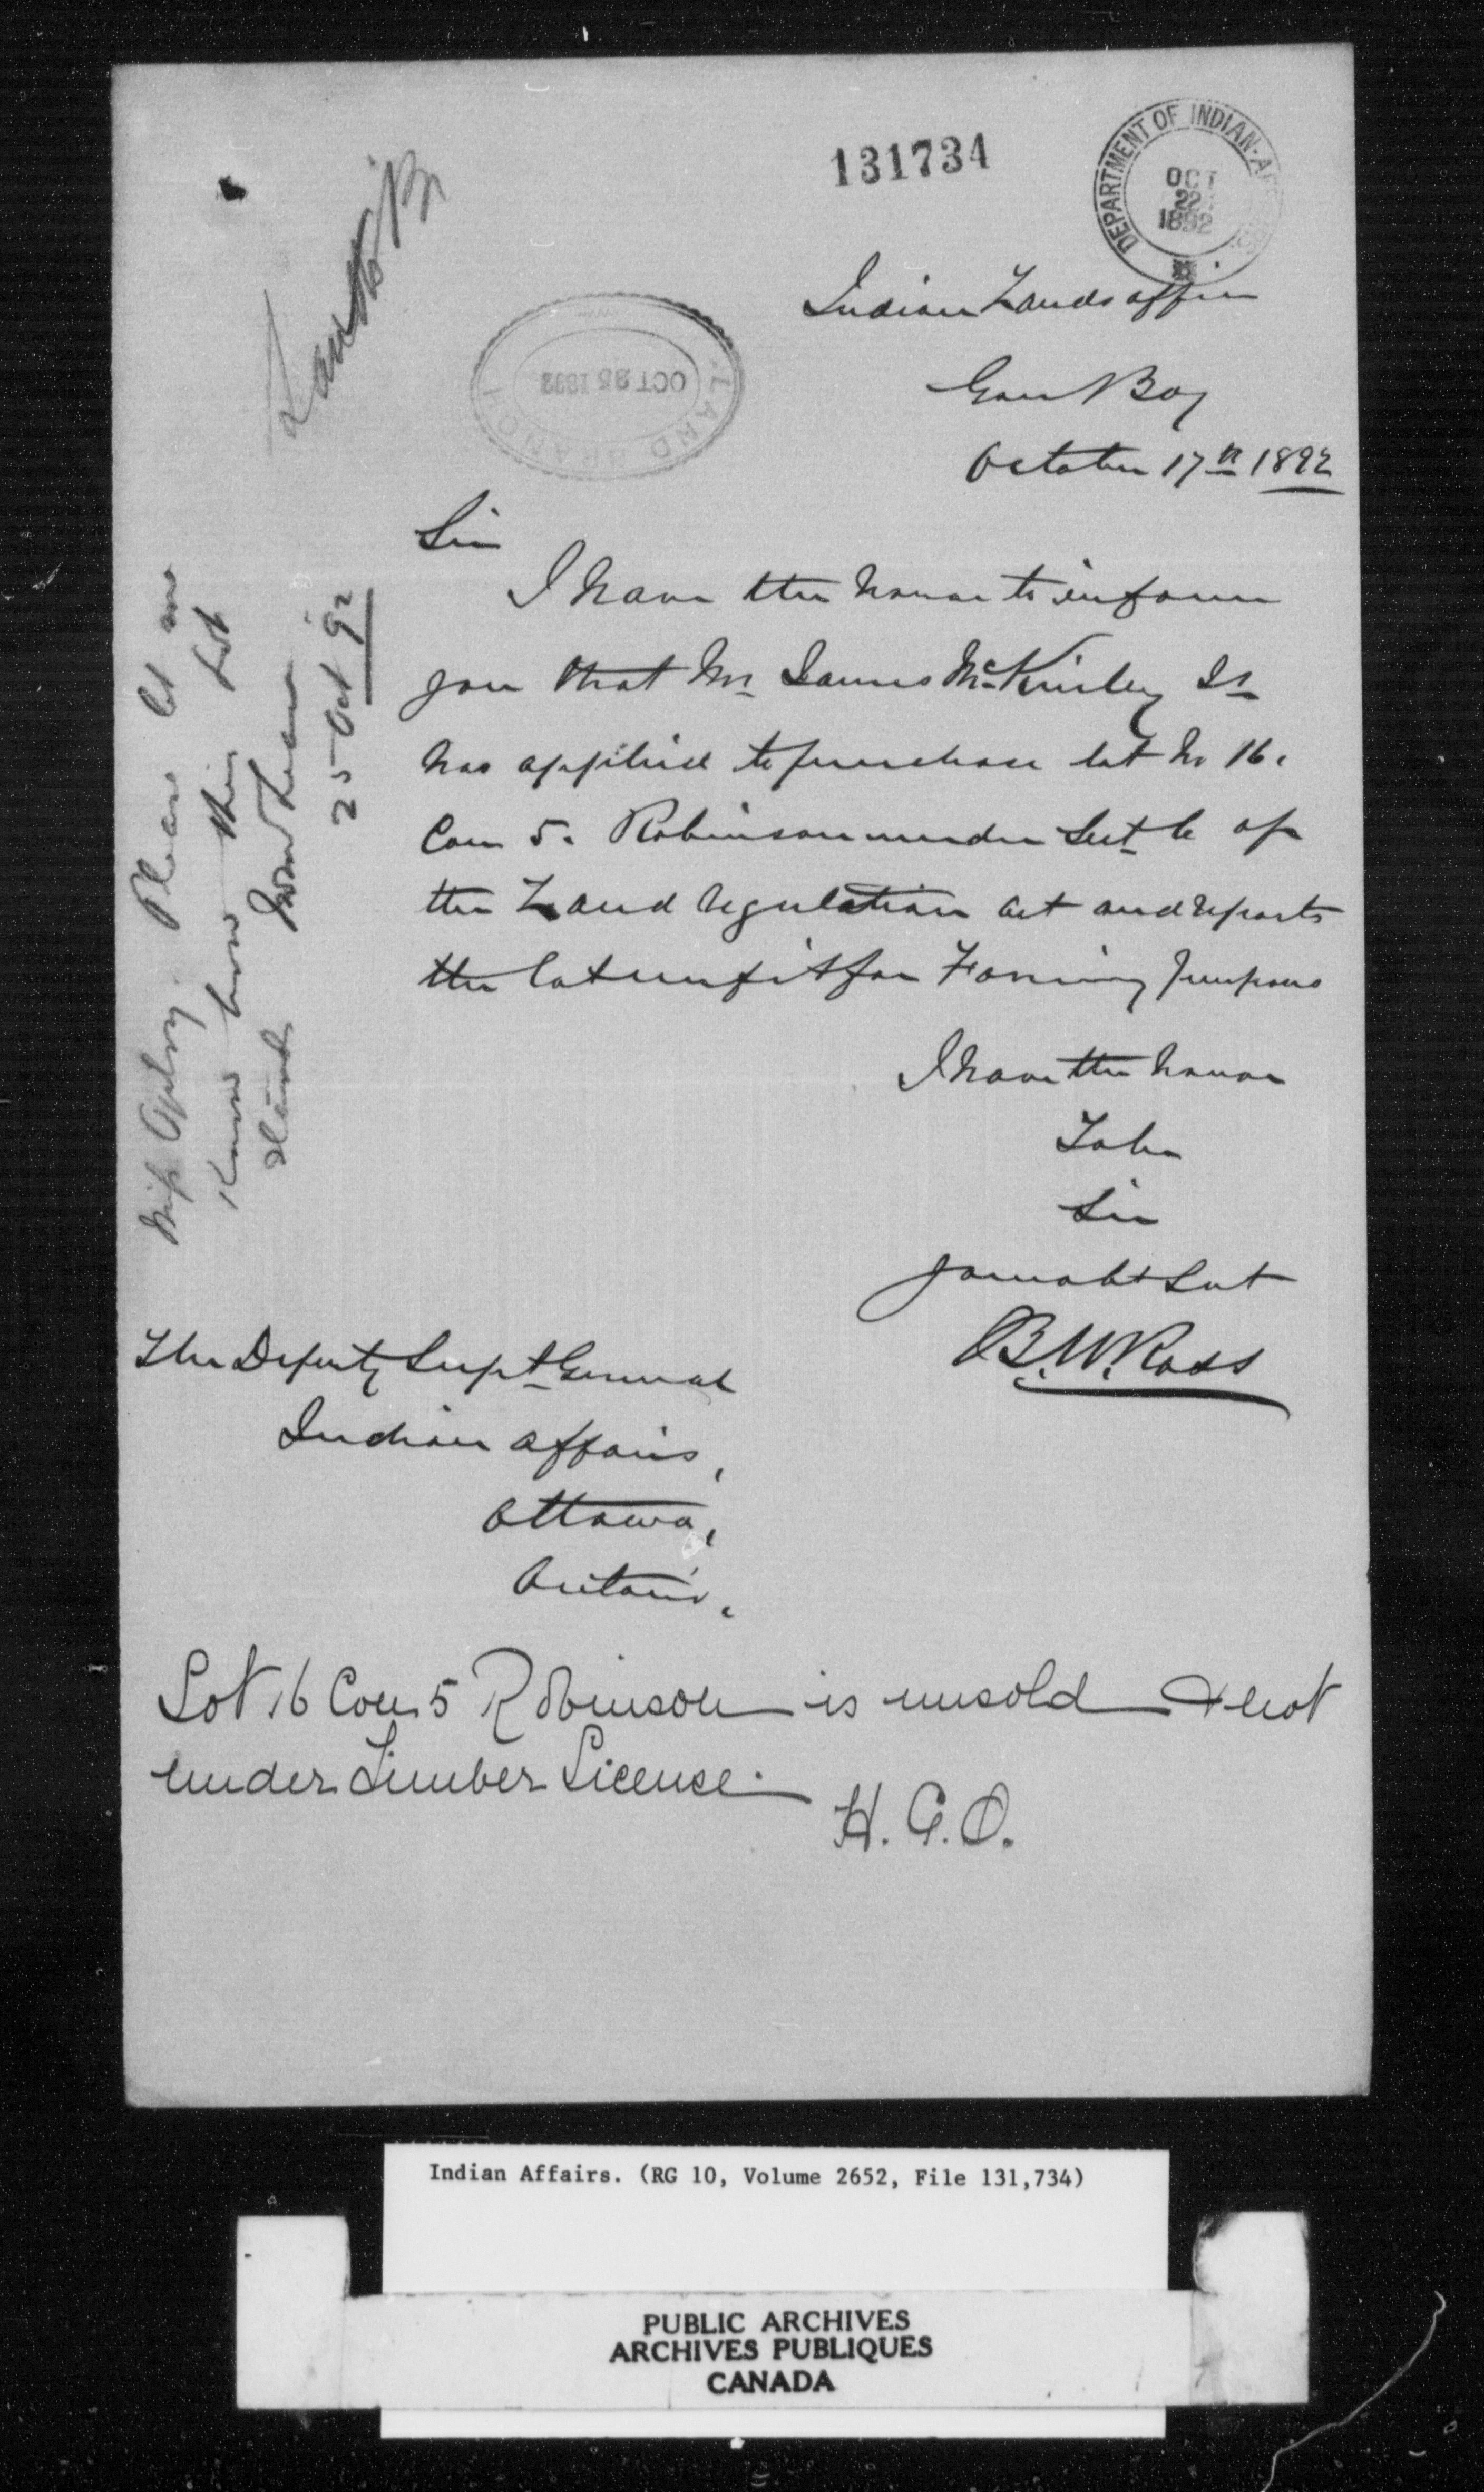 131734
DEPARTMENT OF INDIAN AFFAIRS
OCT
22
1892
Land Br
LAND BRANCH
OCT 25 1892
Indian Lands office
Gore Bay
October 17th 1892
Sir
I have the honor to inform
you that Mr James McKinley Sr
has applied to purchase lot No 16.
Con 5. Robinson under Sect 6 of
the Land regulation act and reports
the lot unfit for Farming purposes
I have the honor
To be
Sir
your obt Svt
B. W. Ross
The Deputy Supt General
Indian affairs,
Ottawa,
Ontario.
Miss Ogilvy. Please let me
know how this lot
stands
25 Oct 92
Lot 16 Con 5 Robinson is unsold & not
under Timber License.
H. G. O.
Indian Affairs. (RG 10, Volume 2652, File 131,734)
PUBLIC ARCHIVES
ARCHIVES PUBLIQUES
CANADA